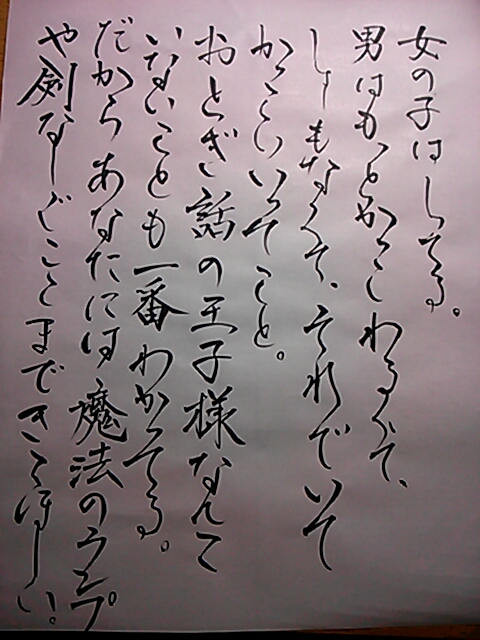 女の子はしってる。
男はもっとかっこわるくて、
しょーもなくて、それでいて
かっこいいってこと。
おとぎ話の王子様なんて
いないことも一番わかってる。
だからあなたには魔法のランプ
や剣なしでここまできてほしい。